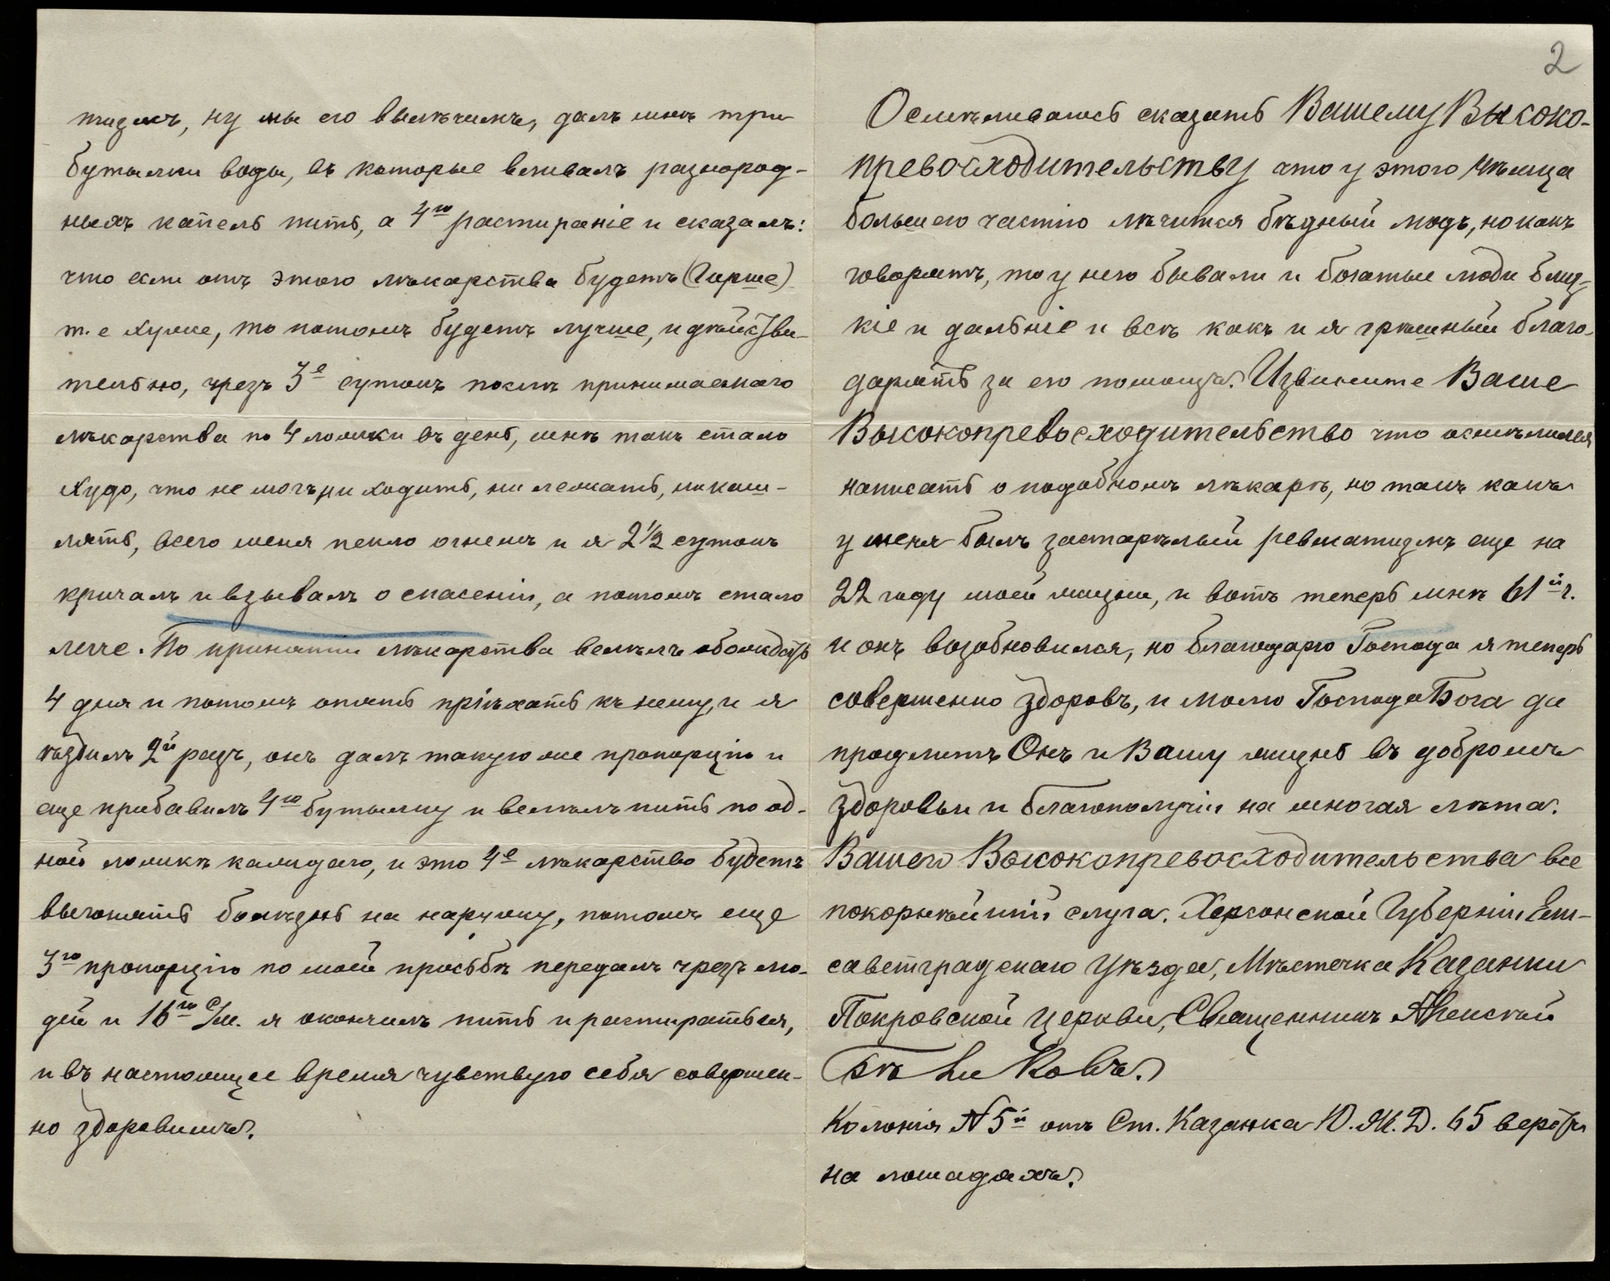 тизмъ, ну мы его вылѣчимъ, далъ мнѣ три
бутылки воды, въ которые вливалъ разнород-
ныхъ капель пить, а 4ю растираніе и сказалъ:
что если отъ этого лѣкарства будетъ (Гирше)
т. е хуже, то потомъ будетъ лучше, и дѣйстви-
тельно, чрезъ 3е сутокъ послѣ принимаемаго
лѣкарства по 4 ложки въ день, мнѣ такъ стало
худо, что не могъ ни ходить, ни лежать, ни каш-
лять, всего меня пекло огнемъ и я 2½ сутокъ
кричалъ и взывалъ о спасеніи, а потомъ стало
легче. По принятіи лѣкарства велѣлъ обождать
4 дня и потомъ опять пріѣхать къ нему, и я
ѣздилъ 2й разъ, онъ далъ такую же пропорцію и
еще прибавилъ 4ю бутылку и велѣлъ пить по од-
ной ложкѣ каждаго, и это 4е лѣкарство будетъ
выгонять болѣзнь на наружу, потомъ еще
3ю пропорцію по моей просьбѣ передалъ чрезъ лю-
дей и 16го с/м. я окончилъ пить и растираться,
и въ настоящее время чувствую себя совершен-
но здоровымъ.
2
Осмѣливаюсь сказать Вашему Высоко-
превосходительству что у этого Нѣмца
большею частію лѣчится бѣдный людъ, но какъ
говорятъ, то у него бывали и богатые люди близ-
кіе и дальніе и всѣ какъ и я грѣшный благо-
дарятъ за его помощь. Извините Ваше
Высокопревосходительство что осмѣлился
написать о подобномъ лѣкарѣ, но такъ какъ
у меня былъ застарѣлый ревматизмъ еще на
22 году моей жизни, и вотъ теперь мнѣ 61й г.
и онъ возобновился, но благодарю Господа я теперь
совершенно здоровъ, и молю Господа Бога да
продлитъ Онъ и Вашу жизнь въ добромъ
здоровьи и благополучіи на многая лѣта.
Вашего Высокопревосходительства все
покорнѣйшій слуга. Херсонской Губерніи Ели-
саветградскаго Уѣзда, Мѣстечка Казанки
Покровской Церкви, Священникъ Алексѣй
Бѣликовъ.
Колонія N 5й отъ Ст. Казанка Ю.Ж.Д. 65 верстъ
на лошадяхъ.